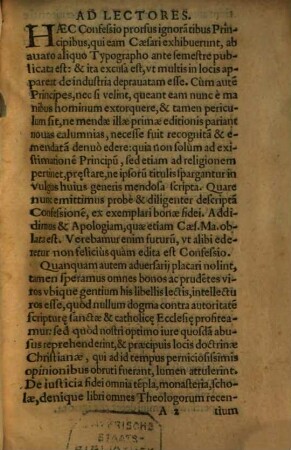 AD LECTORES.
HÆC Confessio prorsus ignorãtibus Prin-
cipibus, qui eam Cæsari exhibuerunt, ab
auaro aliquo Typographo ante semestre pu-
blicata est: & ita excusa est, vt multis in locis ap-
pareat de industria deprauatam esse. Cum autẽ
Principes, nec si velint, queant eam nunc è ma
nibus hominum extorquere, & tamen pericu-
lum sit, ne mendæ illæ primæ editionis pariant
nouas calumnias, necesse fuit recognitã & e-
mendatã denuò edere: quia non solum ad exi-
stimationẽ Principũ, sed etiam ad religionem
pertinet, præstare, ne ipsorũ titulis spargantur in
vulgus huius generis mendosa scripta. Quare
nunc emittimus probè & diligenter descriptã
Confessionẽ, ex exemplari bonæ fidei. Addi-
dimus & Apologiam, quæ etiam Cæs. Ma. ob-
lata est. Verebamur enim futurũ, vt alibi ede-
retur non felicius quàm edita est Confessio.
Quanquam autem aduersarij placari nolint,
tamen speramus omnes bonos ac prudẽtes vi-
ros vbique gentium his libellis lectis, intellectu
ros esse, quòd nullum dogma contra autoritatẽ
scripturę sanctæ & catholicę Ecclesię profitea-
mur: sed quòd nostri optimo iure quosdã abu-
sus reprehenderint, & præcipuis locis doctrinæ
Christianæ, qui ad id tempus perniciosissimis
opinionibus obruti fuerant, lumen attulerint.
De iusticia fidei omnia tẽpla, monasteria, scho-
læ, denique libri omnes Theologorum recen-
A 2 tium
BAYERISCHE
STAATS-